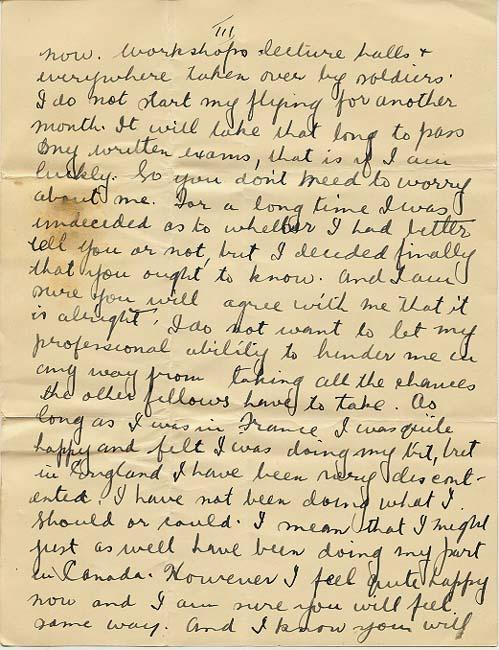 III
now. workshops lecture halls +
everywhere taken over by soldiers.
I do not start my flying for another
month. It will take that long to pass
my written exams, that is if I am
luckly. So you don't need to worry
about me. For a long time I was
undecided as to whether I had better
tell you or not, but I decided finally
that you ought to know. And I am
sure you will agree with me that it
is alright. I do not want to let my
professional ability to hinder me in
any way from taking all the chances
the other fellows have to take. As
long as I was in France I was quite
happy and felt I was doing my bit, but
in England I have been very discont-
ented. I have not been doing what I
should or could. I mean that I might
just as well have been doing my part
in Canada. However I feel quite happy
now and I am sure you will feel
same way. And I know you will